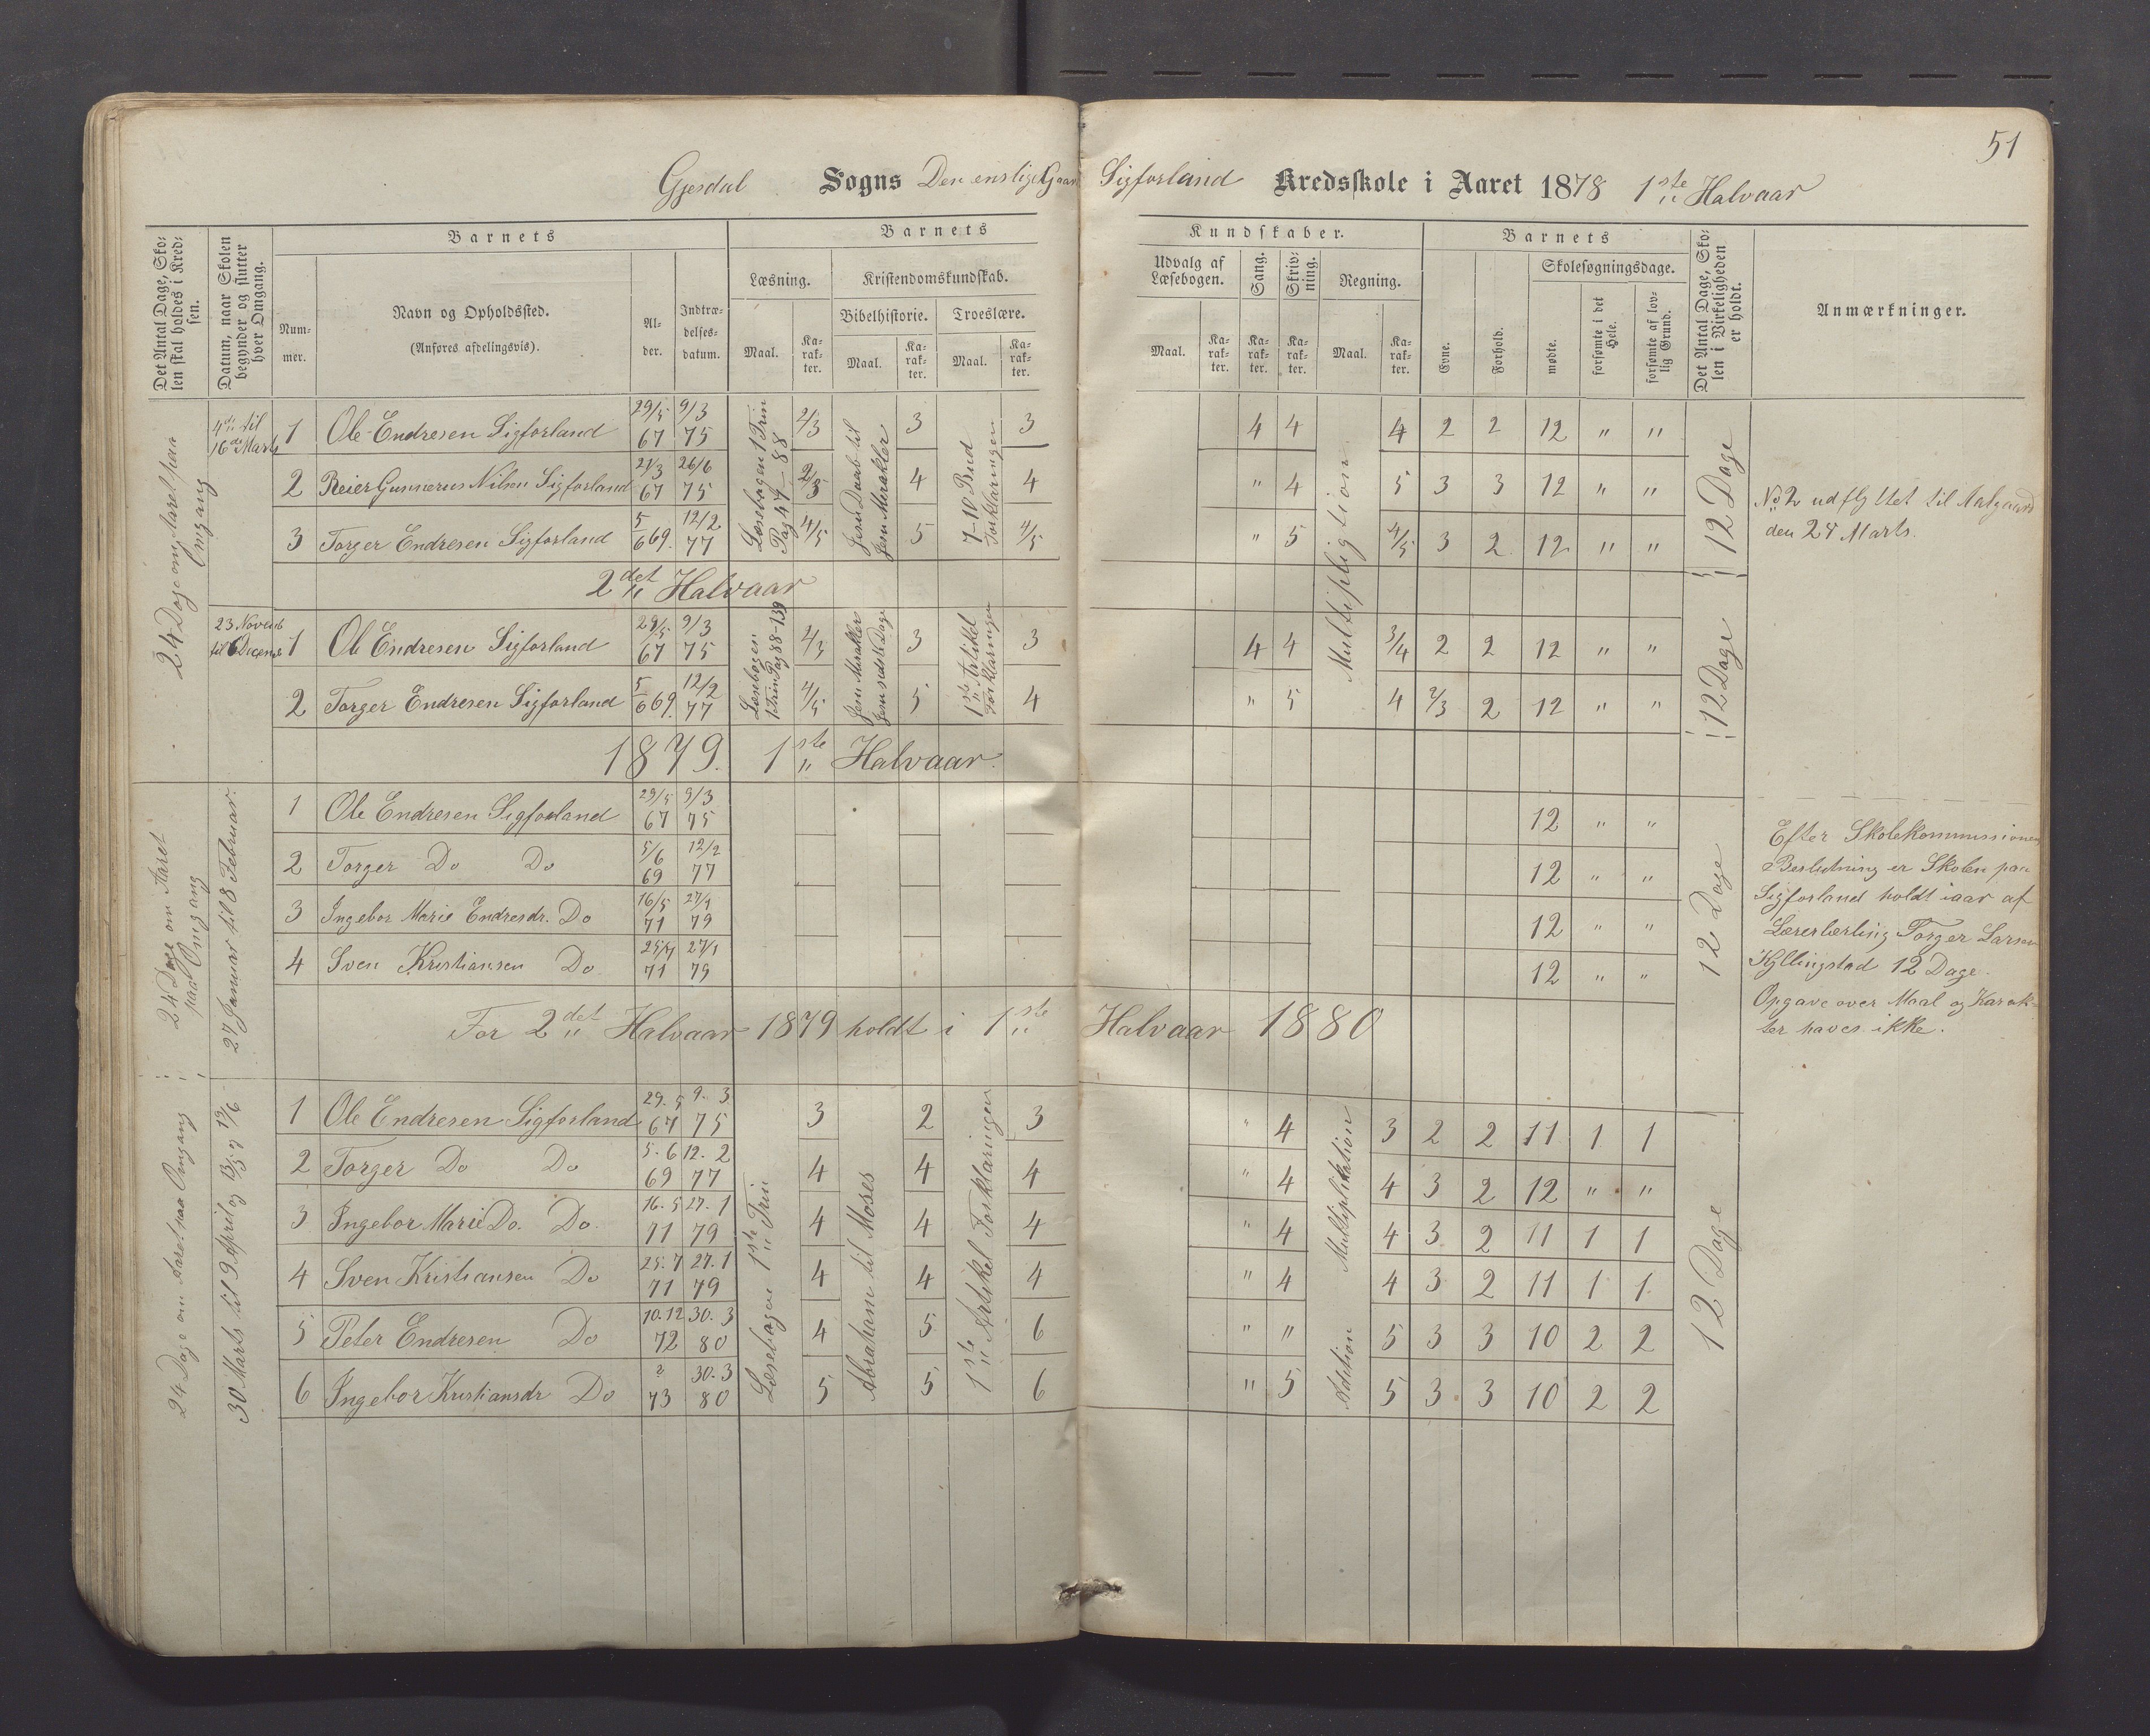 51
Gjesdal Sogns Den enslige Gaard Sigforland Kredsskole i Aaret 1878 1ste Halvaar
Det Antal Dage, Skolen skal holdes i Kredsen.
Datum, naar Skolen begynder og slutter hver Omgang.
Barnets
Nummer.
Navn og Opholdssted.
(Anføres afdelingsvis).
Alder.
Indtrædelsesdatum.
Barnets
Kundskaber.
Læsning.
Maal.
Karakter.
Kristendomskundskab.
Bibelhistorie.
Maal.
Karakter.
Troeslære.
Maal.
Karakter.
Udvalg af Læsebogen.
Maal.
Karakter.
Sang.
Karakter.
Skrivning.
Karakter.
Regning.
Maal.
Karakter.
Barnets
Evne.
Forhold.
Skolesøgningsdage.
mødte.
forsømte i det Hele.
forsømte af lovlig Grund.
Det Antal Dage, Skolen i Virkeligheden er holdt.
Anmærkninger.
24 Dage om Aaret paa
Omgang
4de til
16de Marts
Læsebogen 1 Trin
Pag 47-88
Jesu Daab til
Jesu Mirakler
7-10 Bud
Forklaringen
Multipligtion
12 Dage
1 Ole Endresen Sigforland 29/5 67 9/3 75 2/3 3 3 4 4 4 2 2 12 " "
2 Reier Gunnerus Nilsen Sigforland 21/3 67 26/6 75 2/3 4 4 " 4 5 3 3 12 " "
3 Torger Endresen Sigforland 5/6 69. 12/2 77 4/5 5 4/5 " 5 4/5 3 2 12 " "
No 2 udflyttet til Aalgaard
den 24 Marts.
2det Halvaar
23 Novemb
til 6 Decemb
Læsebogen
1 Trin Pag 88-139
Jesu Mirakler
Jesu sidste Dage
1ste Artikel
Forklaringen
12 Dage
1 Ole Endresen Sigforland 29/5 67 9/3 75 2/3 3 3 4 4 3/4 2 2 12 " "
2 Torger Endresen Sigforland 5/6 69. 12/2 77 4/5 5 4 " 5 4 2/3 2 12 " "
1879. 1ste Halvaar.
24 Dage om Aaret
paa Omgang
27 Januar til 8 Februar.
12 Dage
1 Ole Endresen Sigforland 29/5 67 9/3 75 12 " "
2 Torger Do Do 5/6 69 12/2 77 12 " "
3 Ingebor Marie Endresdr. Do 16/5 71 27/1 79 12 " "
4 Sven Kristiansen Do 25/7 71 27/1 79 12 " "
Efter Skolekommissionens
Beslutning er Skolen paa
Sigforland holdt iaar af
Lærerlærling Torger Larsen
Kyllingstad 12 Dage.
Opgave over Maal og Karak-
ter haves ikke.
For 2det Halvaar 1879 holdt i 1ste Halvaar 1880
24 Dage om Aaret paa Omgang
Læsebogen 1ste Trin
Abraham til Moses
1ste Artikel Forklaringen
Multiplikation
Addition
12 Dage
1 Ole Endresen Sigforland 29.5 67 9.3 75 3 2 3 " 4 3 2 2 11 1 1
2 Torger Do Do 5.6 69 12.2 77 4 4 4 " 4 4 3 2 12 " "
3 Ingebor Marie Do. Do. 16.5 71 27.1 79 4 4 4 " 4 4 3 2 11 1 1
4 Sven Kristiansen Do 25.7 71 27.1 79 4 4 4 " 4 4 3 2 11 1 1
5 Peter Endresen Do 10.12 72 30.3 80 4 5 6 " " 5 3 3 10 2 2
6 Ingebor Kristiansdr Do 73 30.3 80 5 5 6 " 5 5 3 3 10 2 2